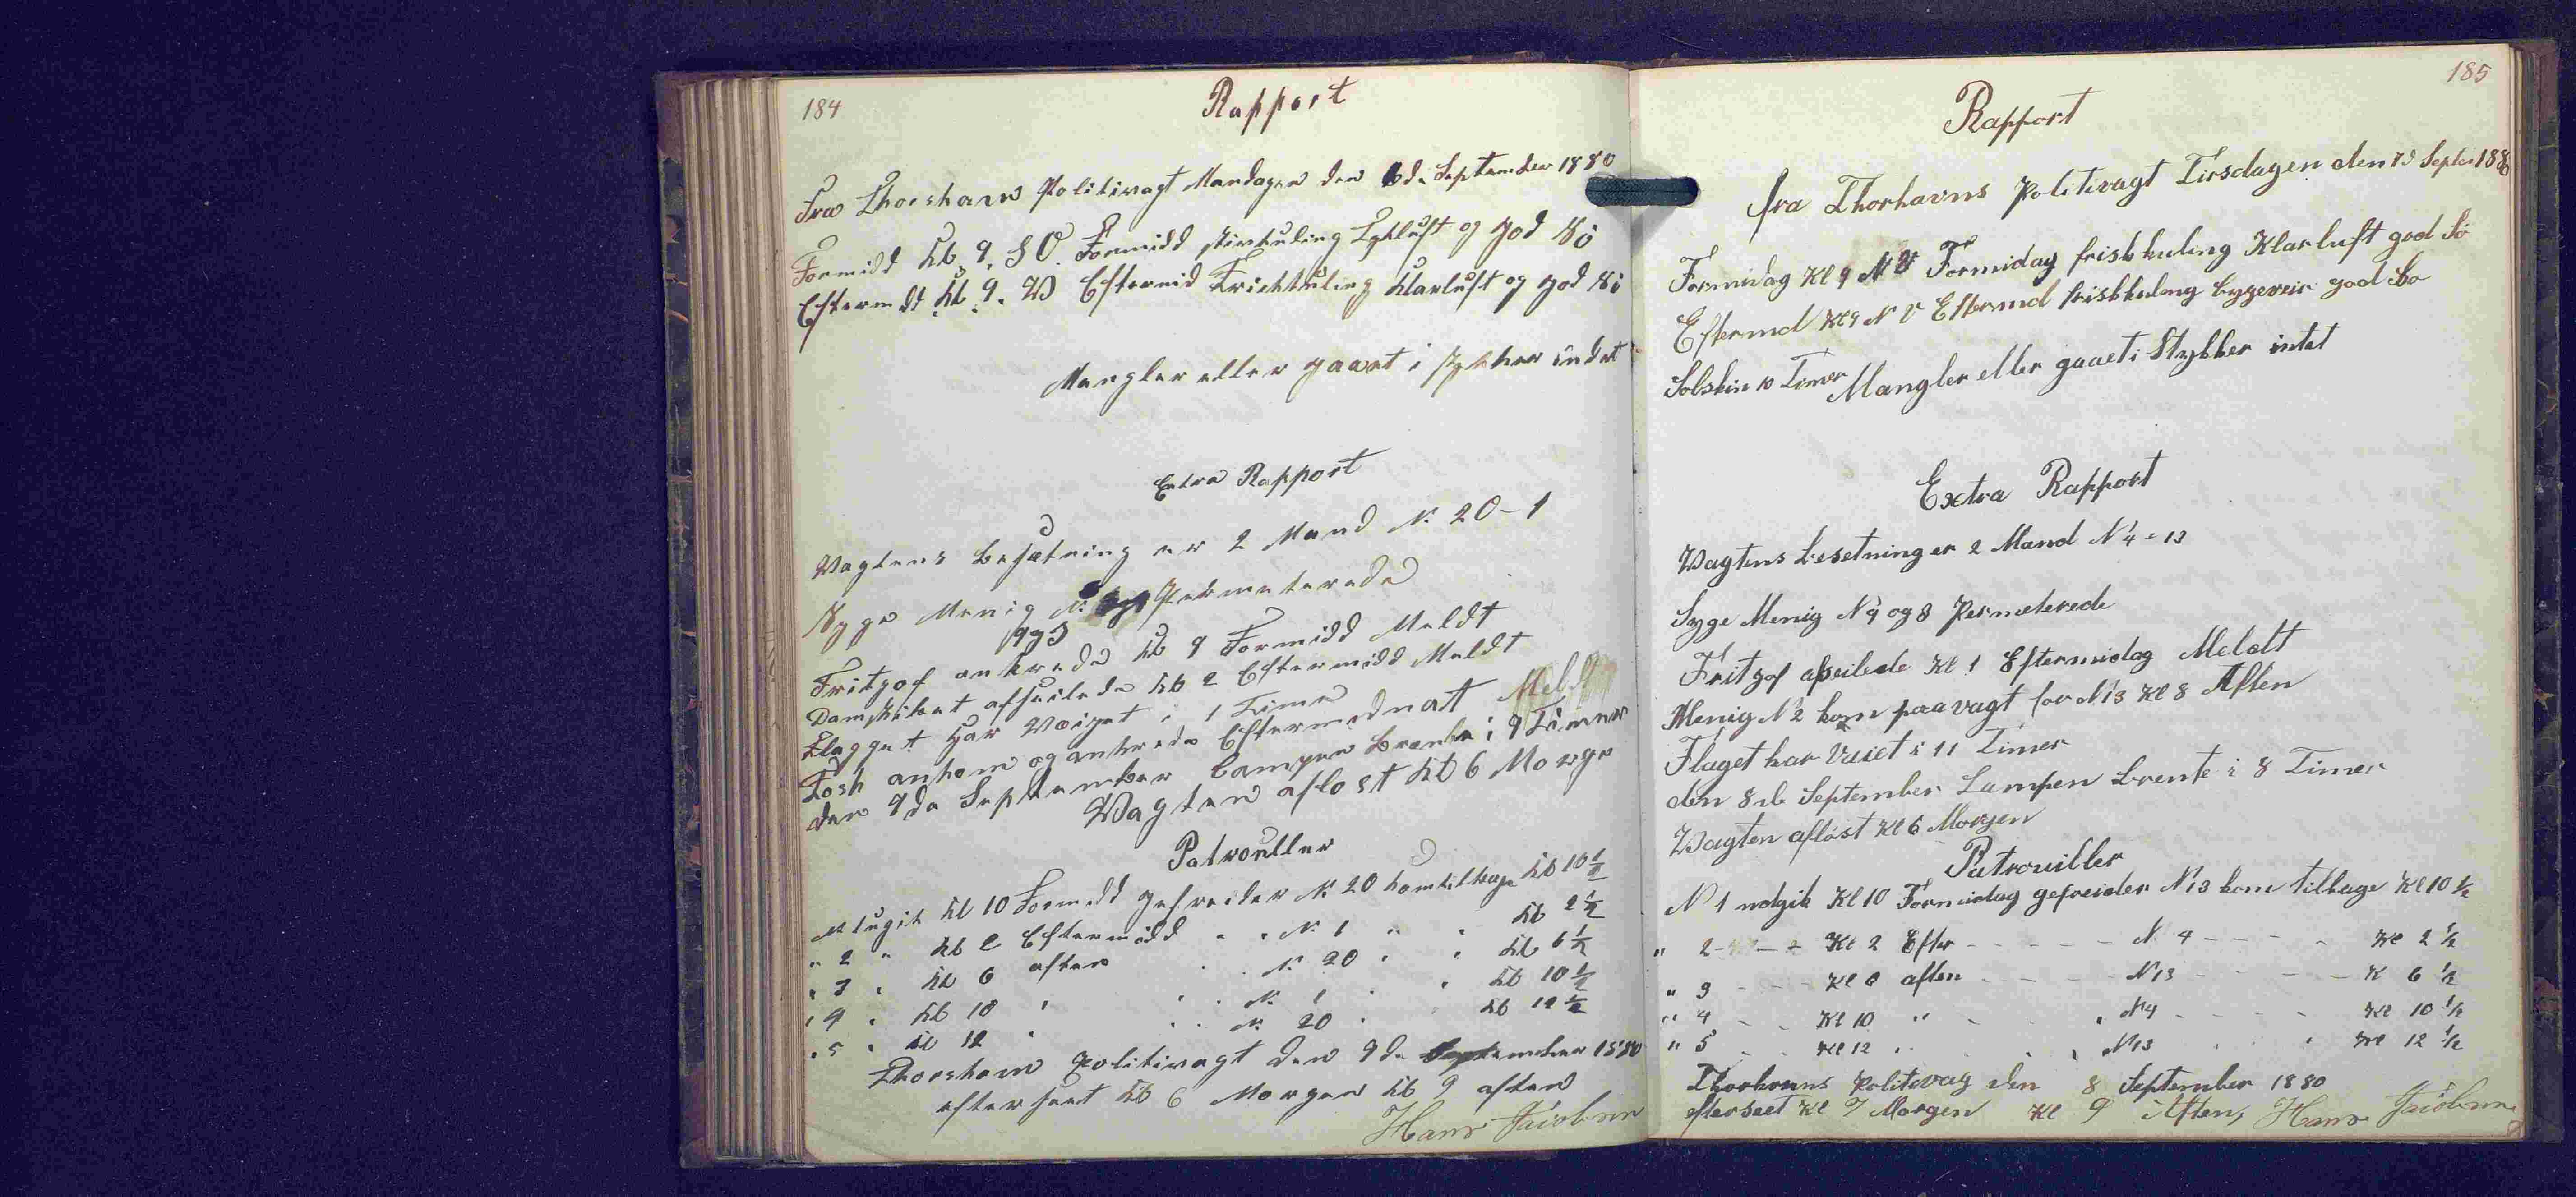 184
Rapport
Fra Thorshavn Politivagt Mandagen den 6de September 1880
Formidd Kl. 9. S O. Formidd stivkuling Tykluft og god Sö
Eftermdd Kl. 9. W Eftermid Friskkuling Klarluft og god Sö
Mangler eller gaaet i stykker indet
Extra Rapport
Vagtens besætning er 2 Mand N. 20-1
Syge Menig N. Permeterede
Fritjof ankrede Kl 9 Formidd Meldt
Damskibet afseilede Kl 2 Eftermidd Meldt
Flagget har Vaiget i 1 Time
Fosk ankom og ankrede Eftermednat Meldt
den 7de September Lampen brente i 9 Timer
Wagten aflost Kl 6 Morge
Patrouller
N 1 ugik Kl 10 Formdd gefreider N. 20 kom tilbage Kl 10 1/2
" 2 " Kl 2 Eftermidd " " N. 1 " " Kl 2 1/2
" 3 " Kl 6 aften " " N. 20 " " Kl 6 1/2
" 4 " Kl 10 " " " N. 1 " " Kl 10 1/2
" 5 " Kl 12 " " " N. 20 " " Kl 12 1/2
Thorshavn Politivagt den 7de September 1880
efterseet Kl 6 Morgen Kl 9 aften
Hans Jacobsen
185
Rapport
fra Thorhavns Politivagt Tirsdagen den 7d Septer 1880
Formidag Kl 9 N V Formiday friskkuling Klarluft god Sö
Eftermd Kl 9 N V Eftermd friskkuling bygeveir god So
Solskin 10 Timer Mangler eller gaaet i Stykker intet
Extra Rapport
Wagtens besetning er 2 Mand N 4 = 13
Syge Menig N 9 og 8 Permeterede
Fritzof afseilede Kl 1 Eftermidag Meldt
Menig N 2 kom paa vagt for N 13 Kl 8 Aften
Flaget har Vaiet i 11 Timer
den 8de September Lampen brente i 8 Timer
Wagten aflöst Kl 6 Morgen
Patrouiller
N 1 udgik Kl 10 Formidag gefreider N 13 kom tilbage Kl 10 1/2
" 2 - - - Kl 2 Efter - - - - - N 4 - - - - Kl 2 1/2
" 3 - - - Kl 6 aften - - - N 13 - - - - K 6 1/2
" 4 - - Kl 10 " - " N 4 - - - - Kl 10 1/2
" 5 - - Kl 12 " " " N 13 " " Kl 12 1/2
Thorhavns Politivag den 8 September 1880
efterseet Kl 7 Morgen Kl 9 Aften, Hans Jacobsen